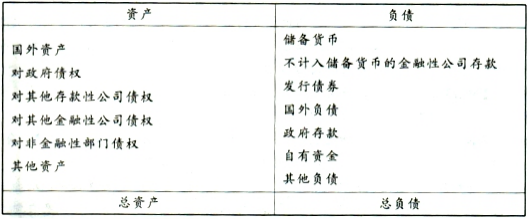 资产
负债
国外资产
对政府债权
对其他存款性公司债权
对其他金融性公司债权
对非金融性部门债权
其他资产
储备货币
不计入储备货币的金融性公司存款
发行债券
国外负债
政府存款
自有资金
其他负债
总资产
总负债